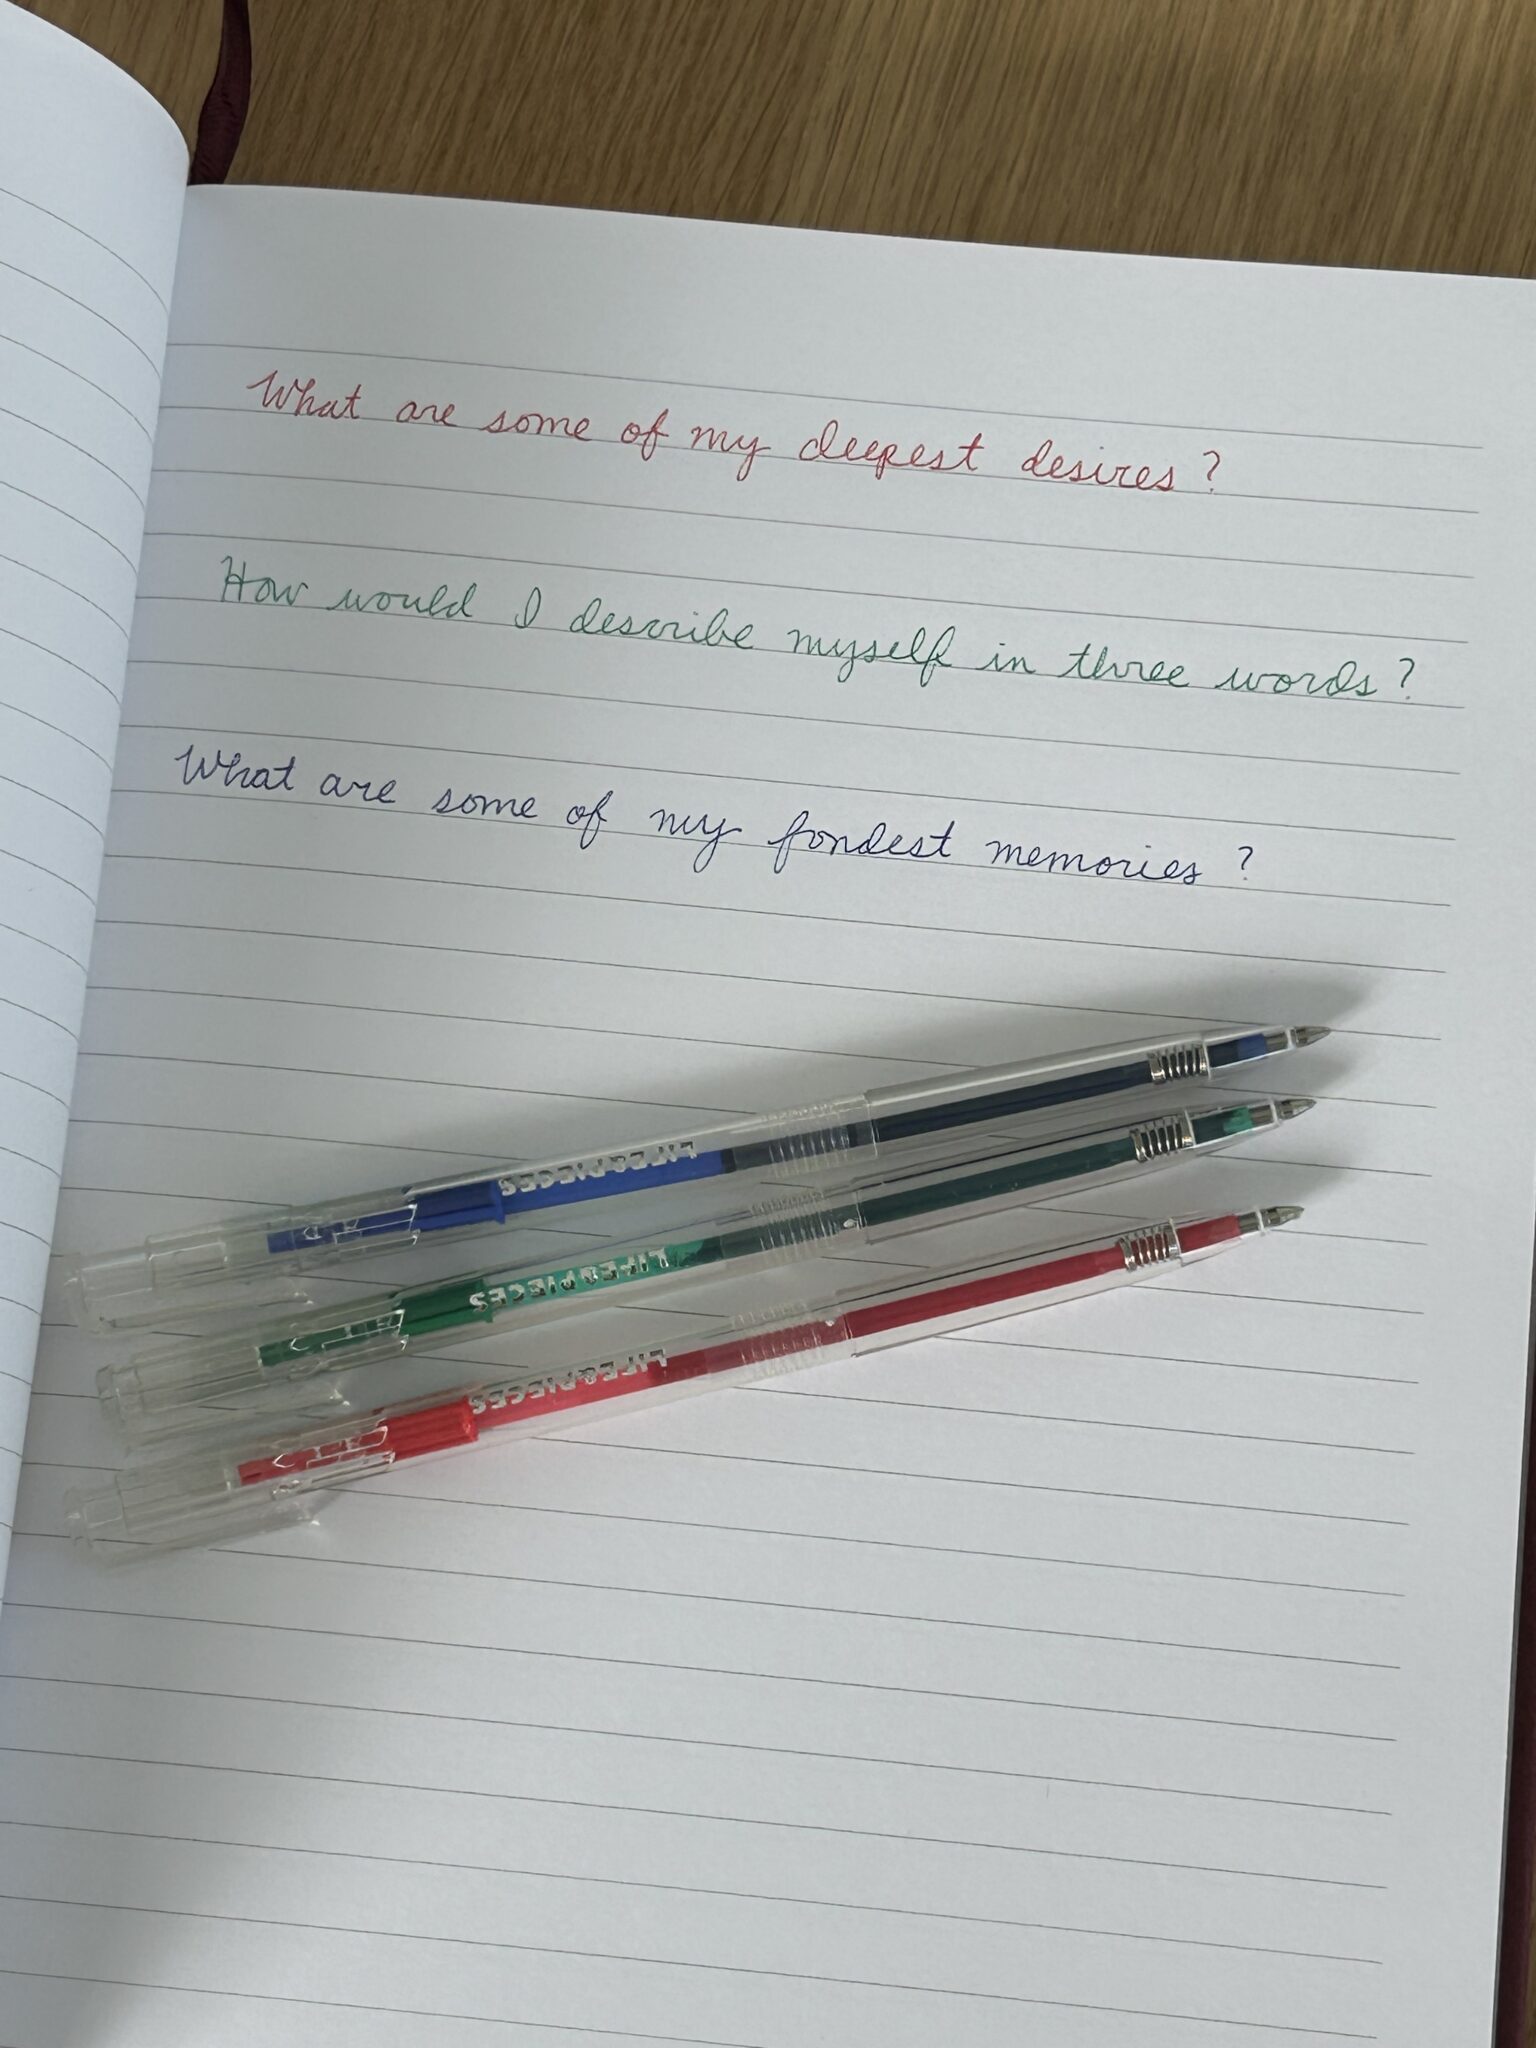 What are some of my deepest desires?
How would I describe myself in three words?
What are some of my fondest memories?
LIFE&PIECES
LIFE&PIECES
LIFE&PIECES